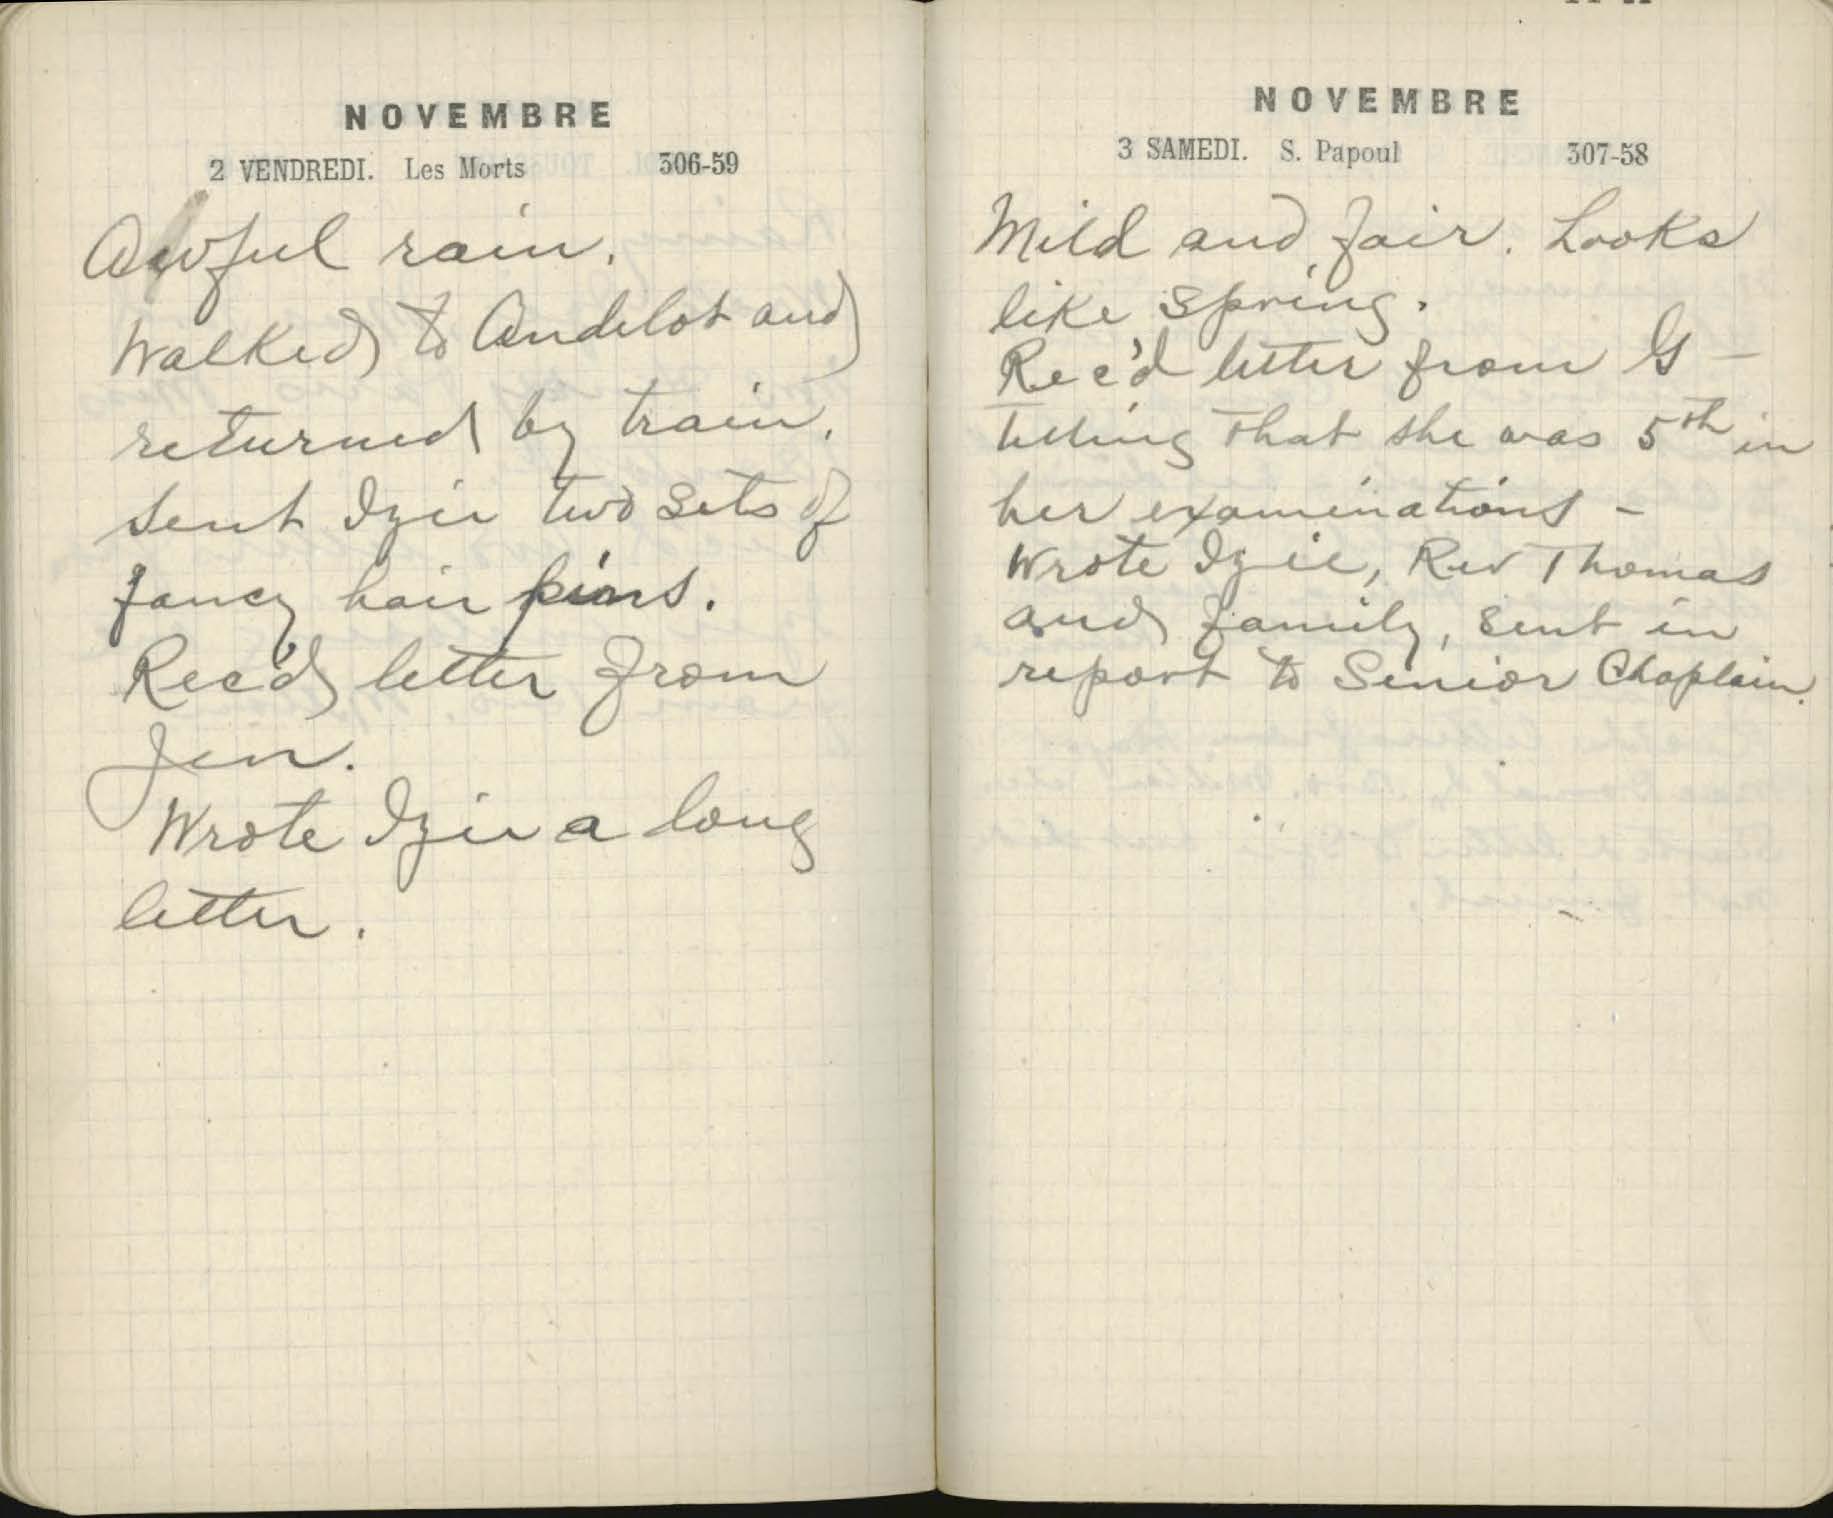 NOVEMBRE
2 VENDREDI. Les Morts 306-59
Awful rain.
Walked to Andelot and
returned by train.
Sent Izie two sets of
fancy hair pins.
Rec'd letter from
Jen.
Wrote Izie a long
letter.
NOVEMBRE
3 SAMEDI. S. Papoul 307-58
Mild and fair. Looks
like spring.
Rec'd letter from G —
telling that she was 5th in
her examinations -
Wrote Izie, Rev Thomas
and family, sent in
report to Senior Chaplain.